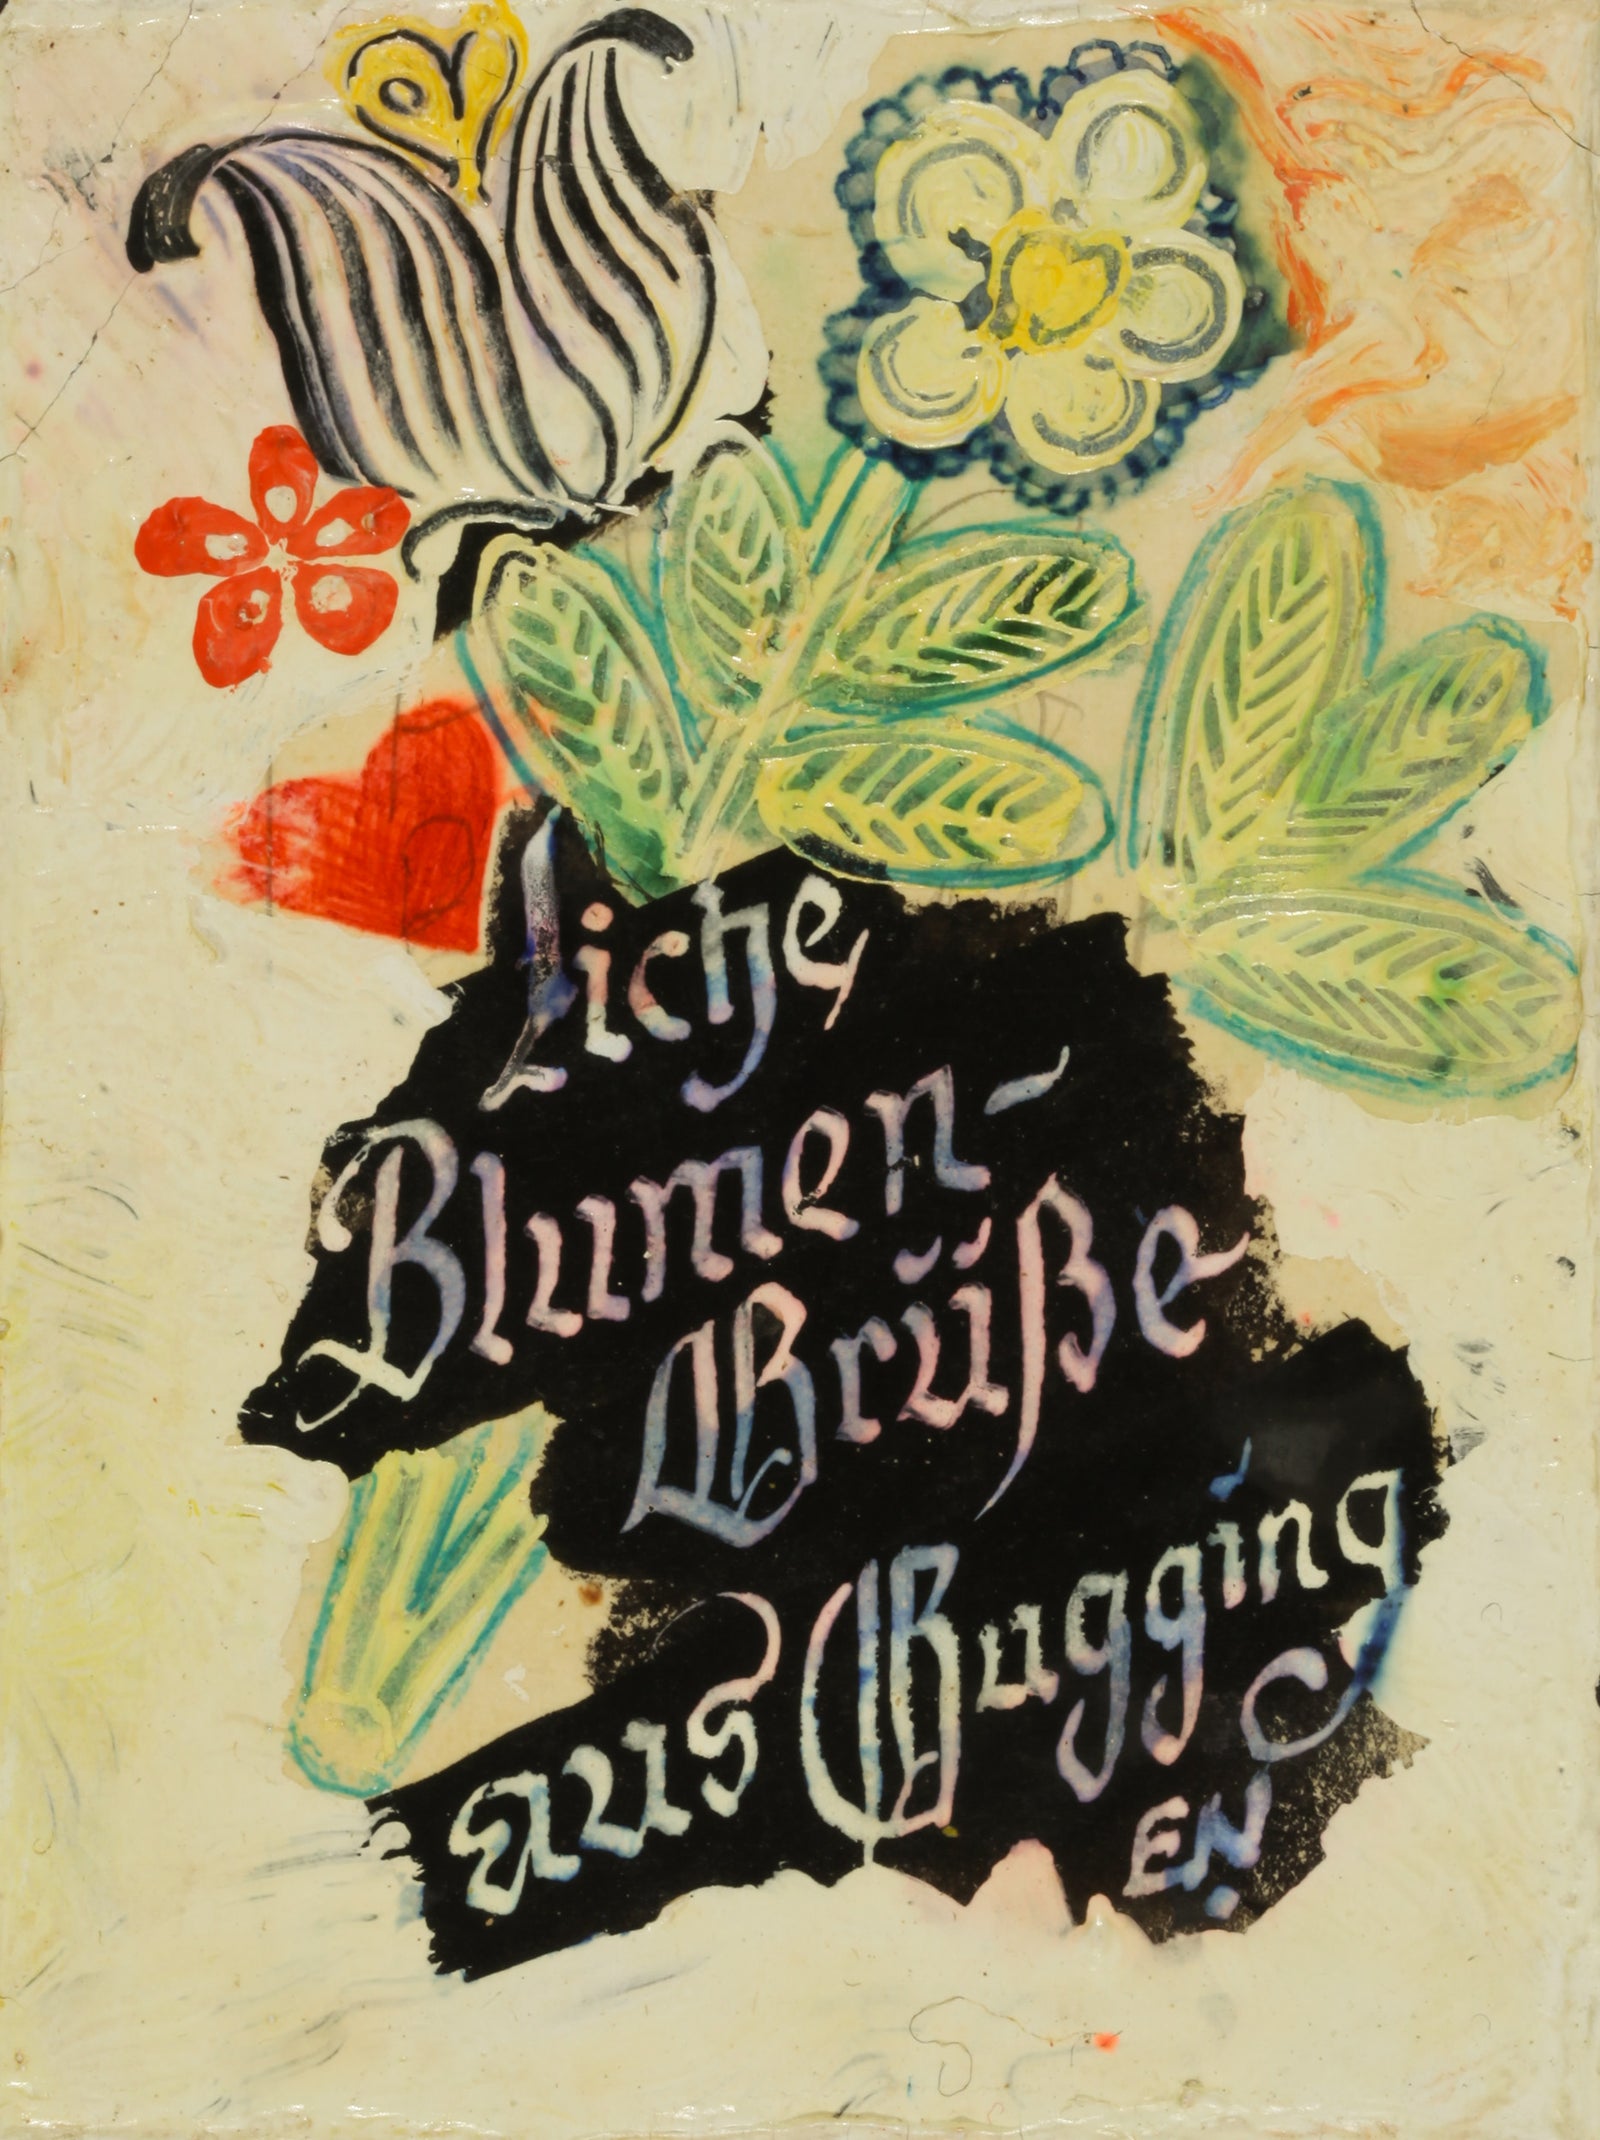 Liche
Blumen-
Grüße
aus Gugging
EN